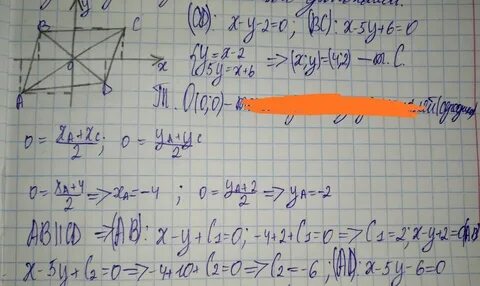 y
B C
0 x
A D
(CD): x-y-2=0, (BC): x-5y+6=0
{y=x-2
{5y=x+6 => (x;y)=(4;2) - т. C.
Т. O(0;0) -
0 = xA+xC/2 ; 0 = yA+yC/2
0 = xA+4/2 => xA=-4 ; 0 = yA+2/2 => yA=-2
AB||CD => (AB): x-y+C1=0; -4+2+C1=0 => C1=2; x-y+2=0(AB)
x-5y+C2=0 => -4+10+C2=0 => C2=-6, (AD): x-5y-6=0